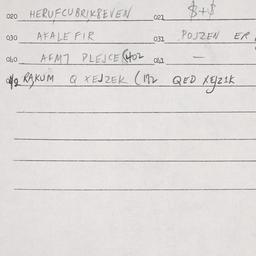 020 HERUFCUBRIKBEVEN 021 $+$
030 AFALEFIR 031 POJZEN ER
060 AFMT PLEJCE 061 —
RAKUM Q XEJZEK (172 QED XEJZ1K